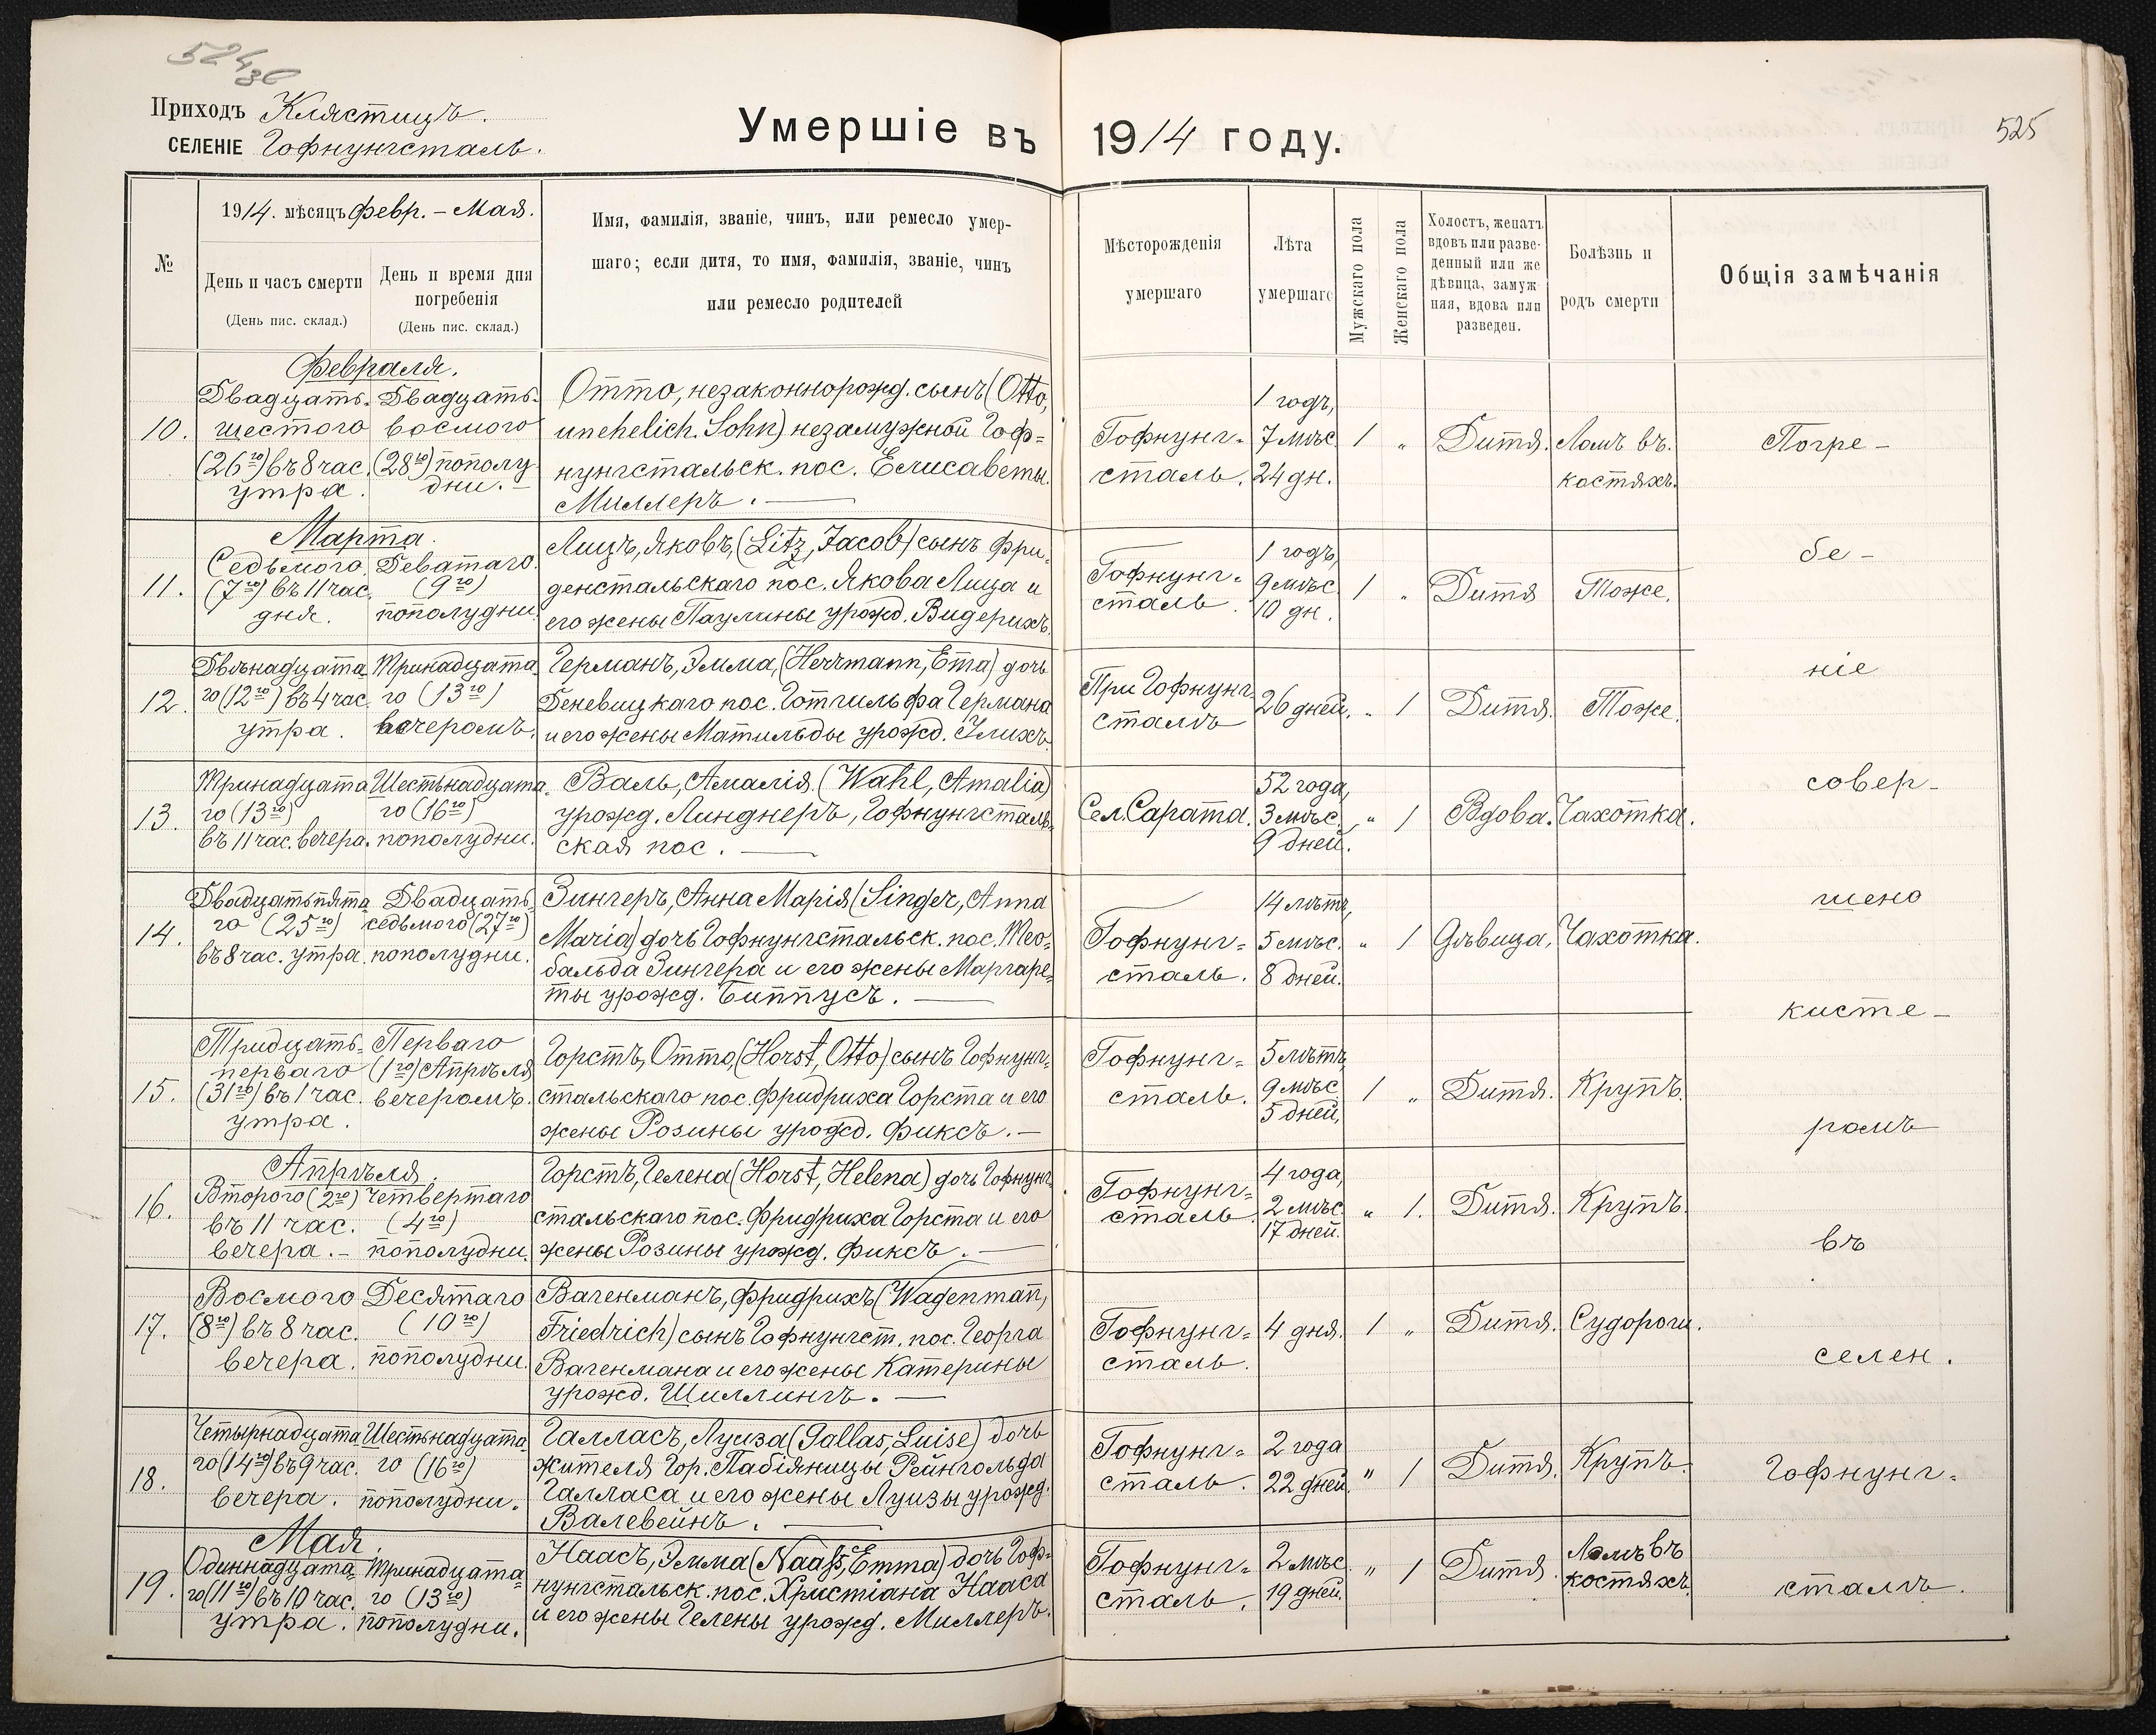 524
30
Приходъ Клястицъ.
СЕЛЕНІЕ Гофнунгсталь.
Умершіе въ 1914 году.
525
№
1914. мѣсяцъ Февр. – Мая.
День и часъ смерти
(День пис. склад.)
День и время дня
погребенія
(День пис. склад.)
Имя, фамилія, званіе, чинъ, или ремесло умер-
шаго; если дитя, то имя, фамилія, званіе, чинъ
или ремесло родителей
Мѣсторожденія
умершаго
Лѣта
умершаго
Мужскаго пола
Женскаго пола
Холостъ, женатъ
вдовъ или разве-
денный или же
дѣвица, замуж-
няя, вдова или
разведен.
Болѣзнь и
родъ смерти
Общія замѣчанія
10.
Февраля.
Двадцать-
шестого
(26го) въ 8 час.
утра.
Двадцать-
восмого
(28го) пополу
дни. –
Отто, незаконнорожд. сынъ (Otto,
unehelich. Sohn) незамужной Гоф=
нунгстальск. пос. Елисаветы
Миллеръ. —
Гофнунг=
сталь.
1 годъ,
7 мѣс.
24 дн.
1
„
Дитя.
Ломъ въ
костяхъ.
11.
Марта.
Седьмого
(7го) въ 11 час.
дня.
Деватаго
(9го)
пополудни.
Лицъ, Яковъ, (Litz, Jacob) сынъ Фри-
денстальскаго пос. Якова Лица и
его жены Паулины урожд. Видерихъ.
Гофнунг=
сталь.
1 годъ,
9 мѣс.
10 дн.
1
„
Дитя
Тоже.
12.
Двѣнадцата
го (12го) въ 4 час.
утра.
Тринадцата
го (13го)
вечеромъ.
Германъ, Эмма, (Herrmann, Ema) дочь
Деневицкаго пос. Готгильфа Германа
и его жены Матильды урожд. Улихъ.
При Гофнунг
сталѣ
26 дней.
„
1
Дитя.
Тоже.
13.
Тринадцата
го (13го)
въ 11 час. вечера.
Шестьнадцата
го (16го)
пополудни.
Валь, Амалія (Wahl, Amalia)
урожд. Линднеръ, Гофнунгсталь-
ская пос. —
Сел. Сарата.
52 года,
3 мѣс.,
9 дней.
„
1
Вдова.
Чахотка.
14.
Двадцатьпята
го (25го)
въ 8 час. утра.
Двадцать-
седьмого (27го)
пополудни.
Зингеръ, Анна Марія (Singer, Anna
Maria) дочь Гофнунгстальск. пос. Тео-
бальда Зингера и его жены Маргаре-
ты урожд. Биппусъ. —
Гофнунг=
сталь.
14 лѣтъ,
5 мѣс.
8 дней.
„
1
Дѣвица,
Чахотка.
15.
Тридцать-
перваго
(31го) въ 1 час.
утра.
Перваго
(1го) Апрѣля
вечеромъ.
Горстъ, Отто, (Horst, Otto) сынъ Гофнунг-
стальскаго пос. Фридриха Горста и его
жены Розины урожд. Фиксъ. –
Гофнунг=
сталь.
5 лѣтъ,
9 мѣс.
5 дней,
1
„
Дитя.
Крупъ.
16.
Апрѣля.
Второго (2го)
въ 11 час.
вечера. –
Четвертаго
(4го)
пополудни.
Горстъ, Гелена (Horst, Helena) дочь Гофнунг-
стальскаго пос. Фридриха Горста и его
жены Розины урожд. Фиксъ. —
Гофнунг=
сталь.
4 года,
2 мѣс.
17 дней.
„
1.
Дитя.
Крупъ.
17.
Восмого
(8го) въ 8 час.
вечера.
Десятаго
(10го)
пополудни.
Вагенманъ, Фридрихъ (Wagenman,
Friedrich) сынъ Гофнунгст. пос. Георга
Вагенмана и его жены Катерины
урожд. Шиллингъ. —
Гофнунг=
сталь.
4 дня.
1
„
Дитя.
Судороги.
18.
Четырнадцата
го (14го) въ 9 час.
вечера.
Шестьнадцата
го (16го)
пополудни.
Галласъ, Луиза (Gallas, Luise) дочь
жителя гор. Пабіяницы Рейнгольда
Галласа и его жены Луизы урожд.
Валевейнъ. —
Гофнунг=
сталь.
2 года
22 дней.
„
1
Дитя.
Крупъ.
19.
Мая.
Одиннадцата
го (11го) въ 10 час.
утра.
Тринадцата
го (13го)
пополудни.
Наасъ, Эмма (Naaß, Emma) дочь Гоф-
нунгстальск. пос. Христіана Нааса
и его жены Гелены урожд. Миллеръ.
Гофнунг=
сталь.
2 мѣс.
19 дней.
„
1
Дитя.
Ломъ въ
костяхъ.
Погре-
бе-
ніе
совер-
шено
кисте-
ромъ
въ
селен.
Гофнунг-
сталѣ.